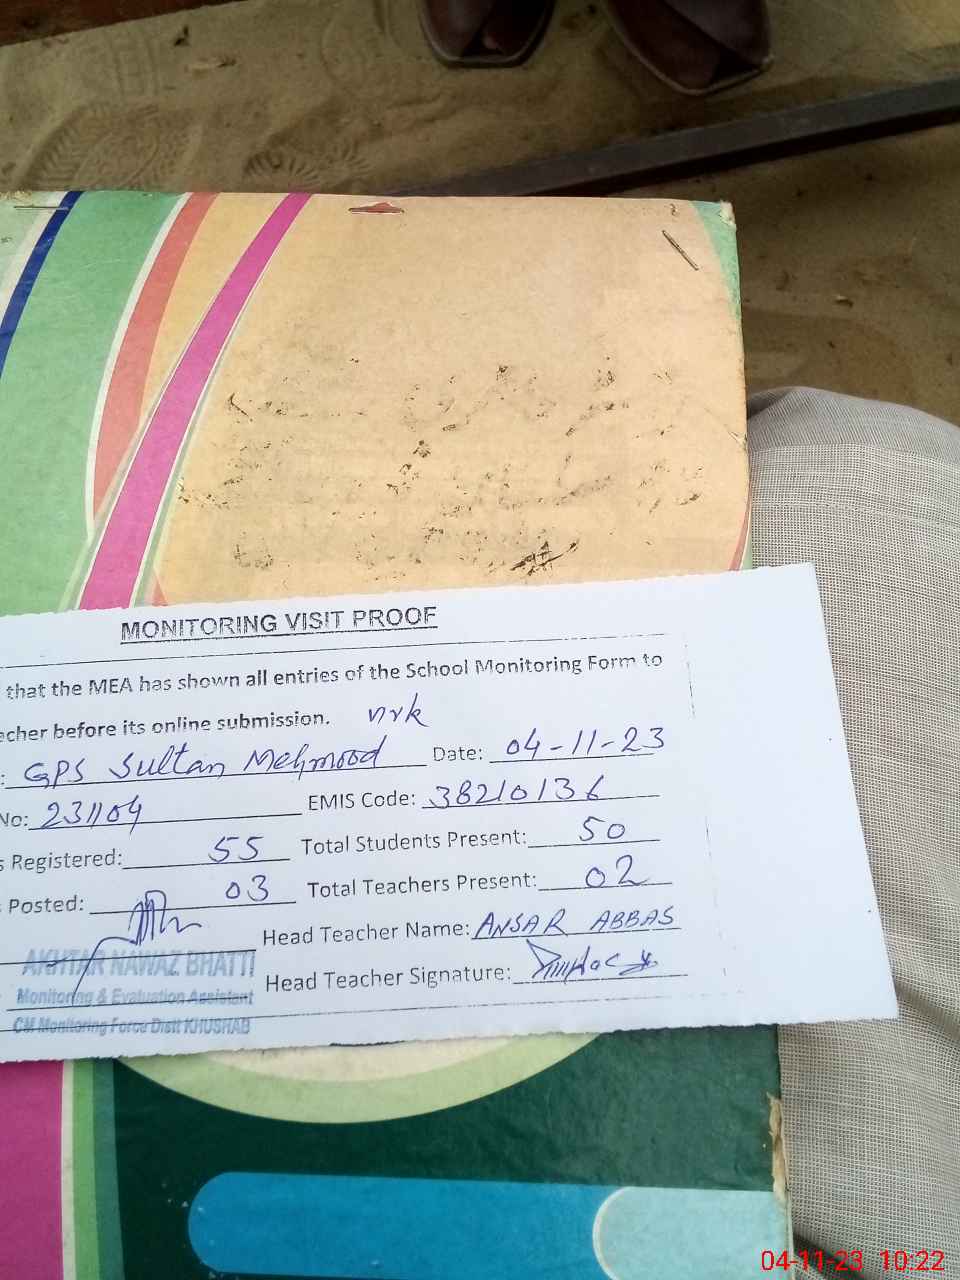 MONITORING VISIT PROOF
that the MEA has shown all entries of the School Monitoring Form to
cher before its online submission. nrk
: GPS Sultan Mehmood Date: 04-11-23
No: 231104 EMIS Code: 38210136
s Registered: 55 Total Students Present: 50
Posted: 03 Total Teachers Present: 02
Head Teacher Name: ANSAR ABBAS
AKHTAR NAWAZ BHATTI
Head Teacher Signature:
Monitoring & Evaluation Assistant
CM Monitoring Force Distt KHUSHAB
04-11-23 10:22